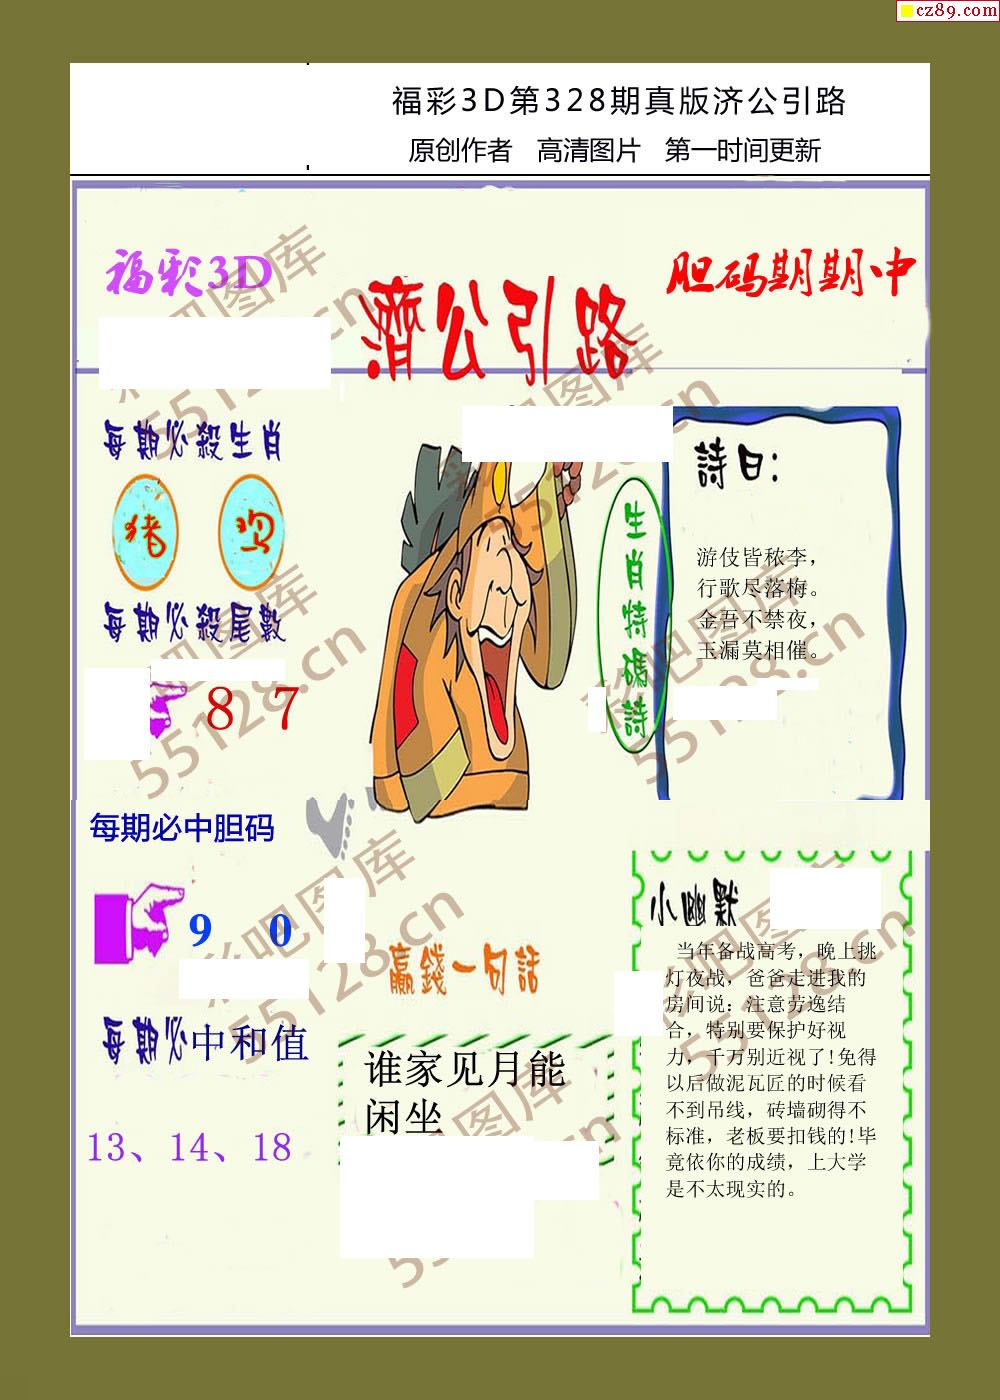 cz89.com
福彩3D第328期真版济公引路
原创作者 高清图片 第一时间更新
福彩3D
濟公引路
胆码期期中
每期必殺生肖
猪 鸡
每期必殺尾數
8 7
生肖特碼詩
詩曰:
游伎皆秾李，
行歌尽落梅。
金吾不禁夜，
玉漏莫相催。
每期必中胆码
9 0
每期必中和值
13、14、18
贏錢一句話
谁家见月能
闲坐
小幽默
当年备战高考，晚上挑
灯夜战，爸爸走进我的
房间说：注意劳逸结
合，特别要保护好视
力，千万别近视了!免得
以后做泥瓦匠的时候看
不到吊线，砖墙砌得不
标准，老板要扣钱的!毕
竟依你的成绩，上大学
是不太现实的。
彩吧图库
55128.cn
彩吧图库
55128.cn
彩吧图库
55128.cn
彩吧图库
55128.cn
彩吧图库
55128.cn